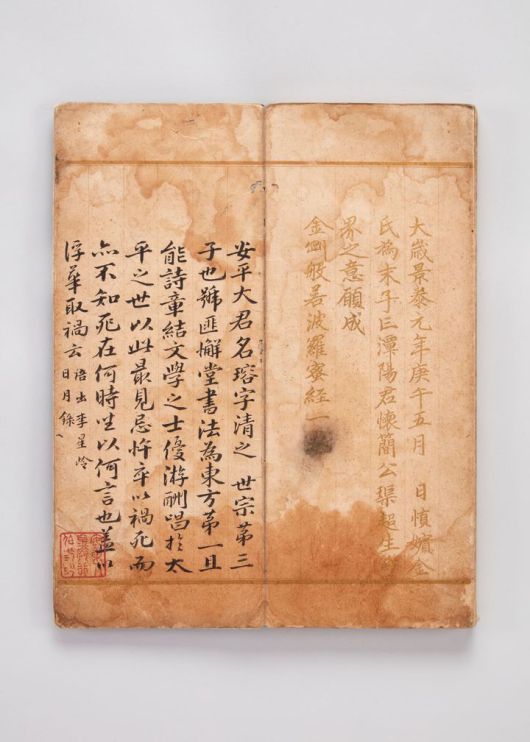 大歳景泰元年庚午五月 日愼嬪金
氏為末子臣潭陽君懷簡公璖超生
界之意願成
金剛般若波羅蜜経一
安平大君名瑢字清之 世宗第三
子也號匪懈堂書法為東方第一且
能詩章結文學之士優游酬唱扵太
平之世以此最見忌忤卒以禍死而
亦不知死在何時坐以何言也盖以
浮華取禍云 語出李星岭
日月錄